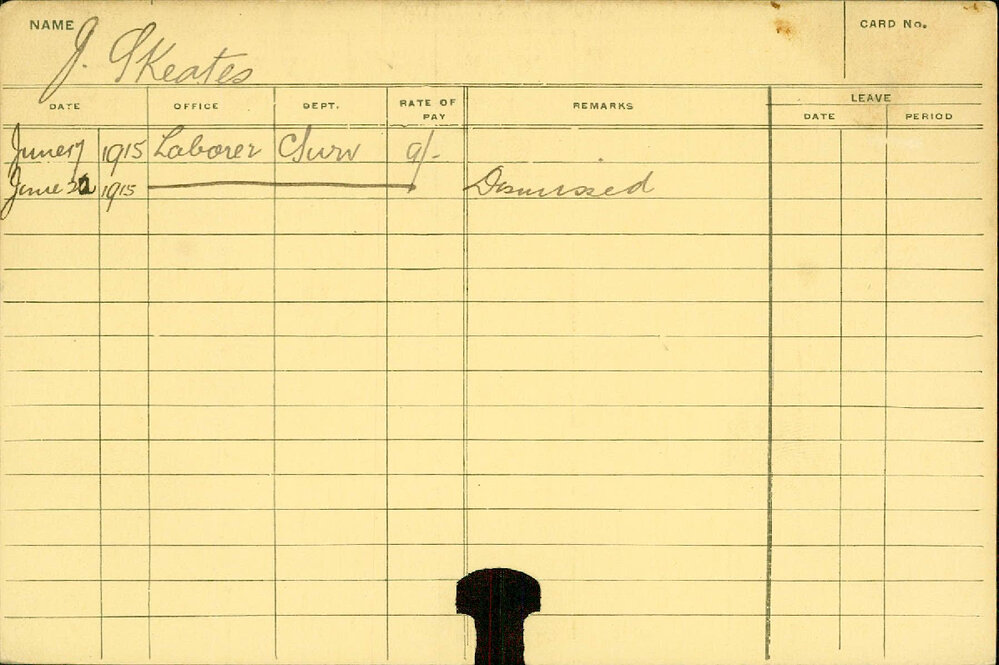 NAME J. Skeates CARD No.
DATE OFFICE DEPT. RATE OF PAY REMARKS LEAVE
DATE PERIOD
June 17 1915 Laborer CSurv 9/-
June 22 1915 Dismissed